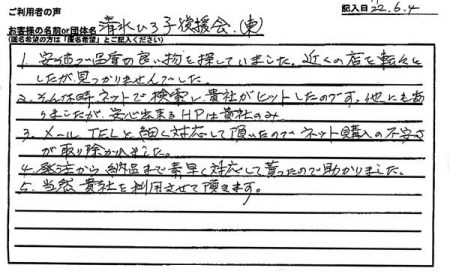 ご利用者の声
記入日 '22.6.4
お客様の名前or団体名 清水ひろ子後援会.(東)
(匿名希望の方は「匿名希望」とご記入ください)
1. 安価で品質の良い物を探していました。近くの店を転々と
したが見つかりませんでした。
2. そんな時ネットで検索し貴社がヒットしたのです。他にもあ
りましたが、安心出来るHPは貴社のみ
3. メール TELと細く対応して頂いたのでネット購入の不安さ
が取り除かれました。
4. 発注から納品まで素早く対応して貰ったので助かりました。
5. 当然貴社を利用させて頂きます。